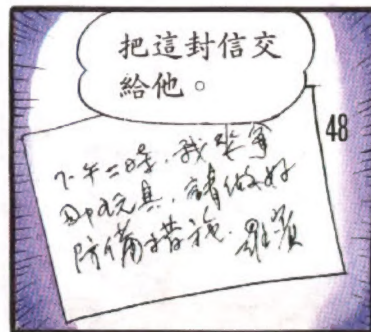 把這封信交
給他。
48
下午二時，我
玩具，請做好
防備措施．